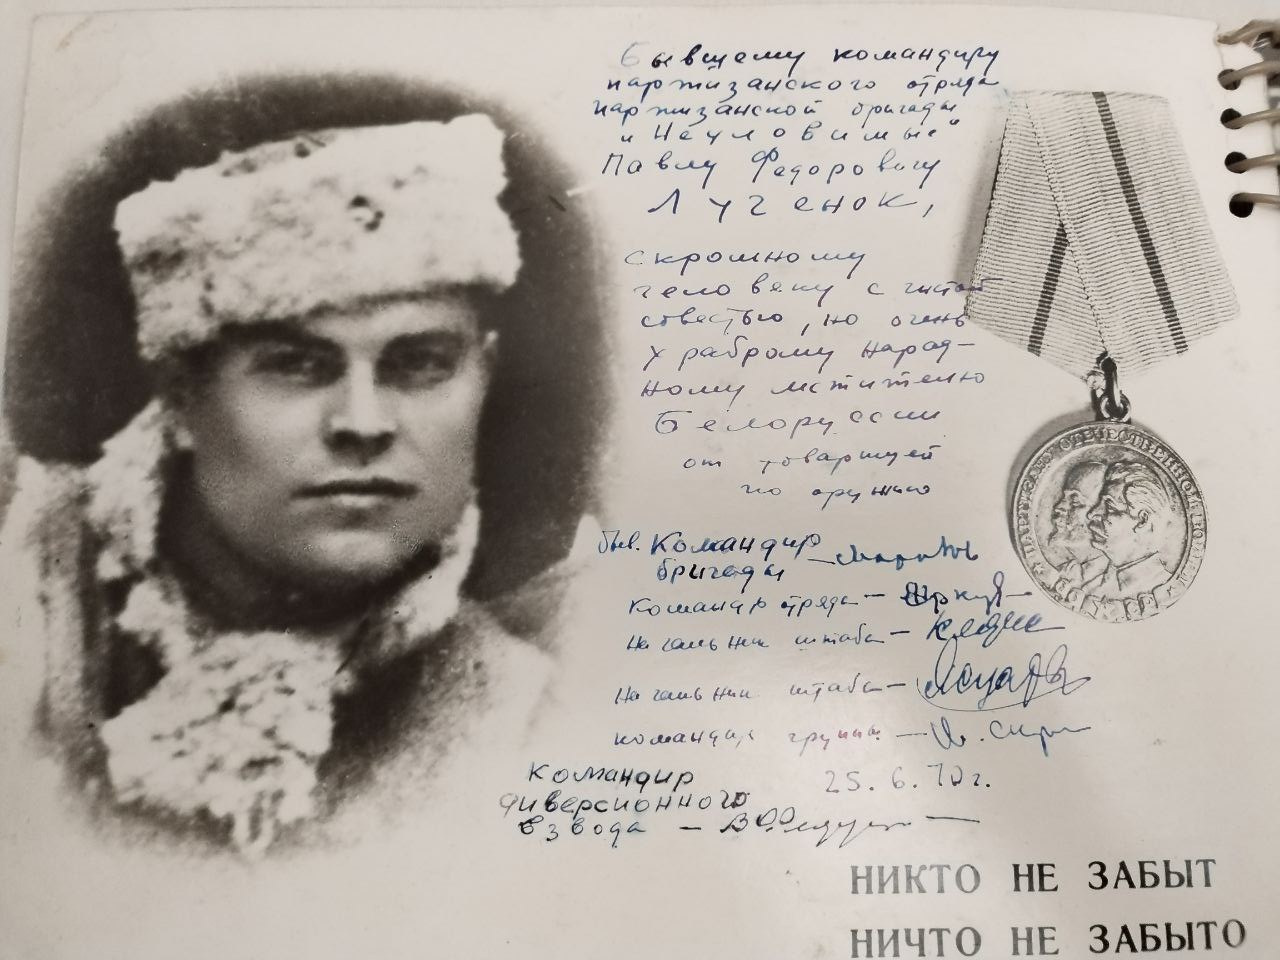 Бывшему командиру
партизанского отряда
партизанской бригады
"Неуловимые"
Павлу Федоровичу
Лученок,
скромному
человеку с чистой
совестью, но очень
храброму народ-
ному мстителю
Белоруссии
от товарищей
по оружию
быв. Командир
бригады —
командир отряда —
Начальник штаба —
Начальник штаба —
командир группы —
25.6.70г.
Командир
диверсионного
взвода —
ПАРТИЗАНУ ОТЕЧЕСТВЕННОЙ ВОЙНЫ
СССР
НИКТО НЕ ЗАБЫТ
НИЧТО НЕ ЗАБЫТО